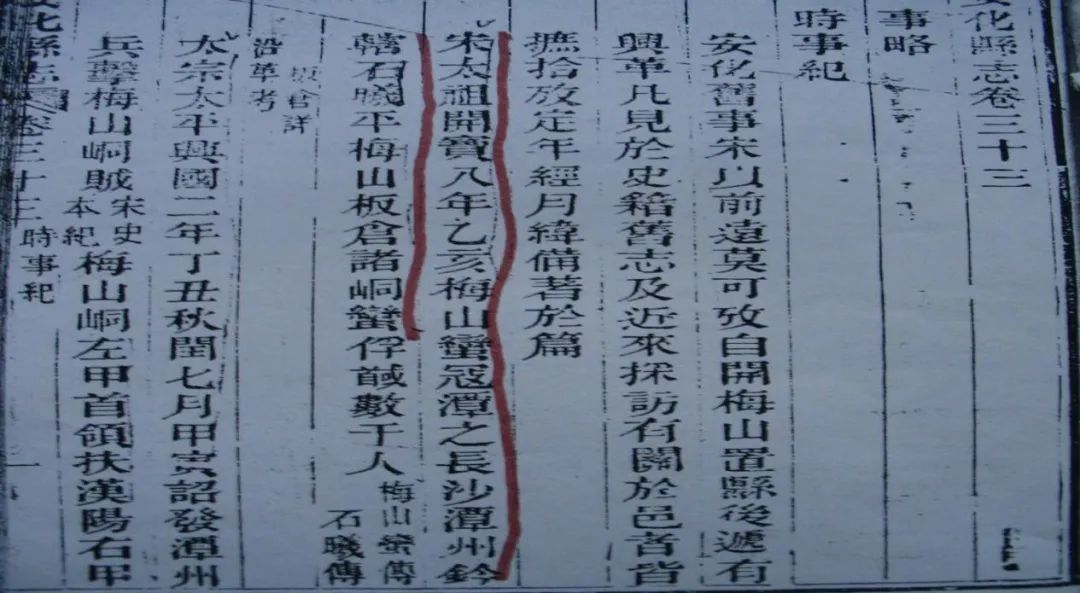 安化縣志卷三十三
事略
時事紀
安化舊事宋以前遠莫可攷自開梅山置縣後遞有
興革凡見於史籍舊志及近來採訪有關於邑者皆
摭拾放定年經月緯備著於篇
宋太祖開寶八年乙亥梅山蠻寇潭之長沙潭州鈐
轄石曦平梅山板倉諸峒蠻俘馘數千人
梅山蠻傳
石曦傳
板倉詳
沿革考
太宗太平興國二年丁丑秋閏七月甲寅詔發潭州
兵擊梅山峒賊
宋史
本紀
梅山峒左甲首領扶漢陽右甲
化縣志
卷三十三
時事紀
一